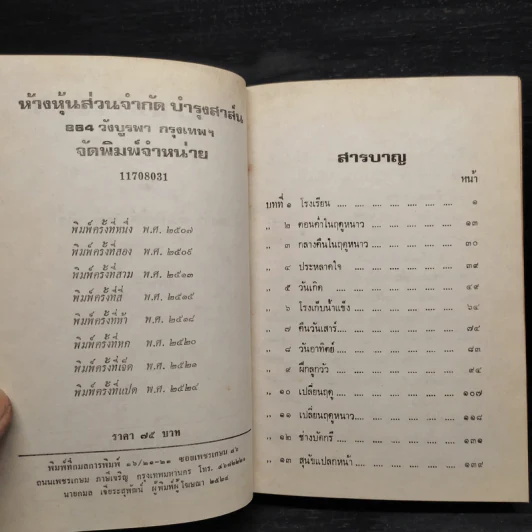 ห้างหุ้นส่วนจำกัด บำรุงสาส์น
๘๘๔ วังบูรพา กรุงเทพฯ
จัดพิมพ์จำหน่าย
11708031
พิมพ์ครั้งที่หนึ่ง พ.ศ. ๒๕๐๗
พิมพ์ครั้งที่สอง พ.ศ. ๒๕๐๙
พิมพ์ครั้งที่สาม พ.ศ. ๒๕๑๓
พิมพ์ครั้งที่สี่ พ.ศ. ๒๕๑๕
พิมพ์ครั้งที่ห้า พ.ศ. ๒๕๑๘
พิมพ์ครั้งที่หก พ.ศ. ๒๕๒๐
พิมพ์ครั้งที่เจ็ด พ.ศ. ๒๕๒๑
พิมพ์ครั้งที่แปด พ.ศ. ๒๕๒๔
ราคา ๗๕ บาท
พิมพ์ที่กมลการพิมพ์ ๑๖/๒๑-๒๓ ซอยเพชรเกษม
ถนนเพชรเกษม ภาษีเจริญ กรุงเทพมหานคร โทร.
นายกมล ผู้พิมพ์ผู้โฆษณา ๒๕๒๔
สารบาญ
หน้า
บทที่ ๑ โรงเรียน .... .... .... .... .... .... .... ๑
,, ๒ ตอนค่ำในฤดูหนาว .... .... .... .... .... ๑๓
,, ๓ กลางคืนในฤดูหนาว .... .... .... .... .... ๓๐
,, ๔ ประหลาดใจ .... .... .... .... .... .... ๓๙
,, ๕ วันเกิด .... .... .... .... .... .... .... ๔๙
,, ๖ โรงเก็บน้ำแข็ง .... .... .... .... .... .... ๖๔
,, ๗ คืนวันเสาร์ .... .... .... .... .... .... ๗๔
,, ๘ วันอาทิตย์ .... .... .... .... .... .... ๘๓
,, ๙ ฝึกลูกวัว .... .... .... .... .... .... ๙๔
,, ๑๐ เปลี่ยนฤดู .... .... .... .... .... .... ๑๐๗
,, ๑๑ เปลี่ยนฤดูหนาว .... .... .... .... .... ๑๑๘
,, ๑๒ ช่างบัดกรี .... .... .... .... .... .... ๑๓๑
,, ๑๓ สุนัขแปลกหน้า .... .... .... .... .... ๑๓๙